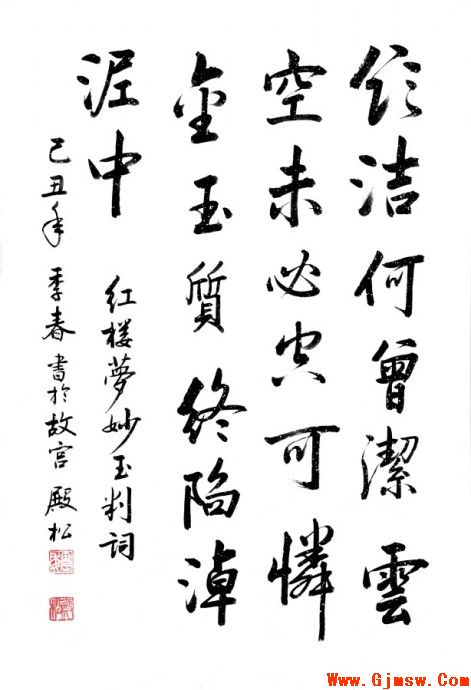 欲洁何曾潔雲
空未必空可憐
金玉質終陷淖
泥中
红楼夢妙玉判词
己丑年季春書於故宫 殿松
Www.Gjmsw.Com